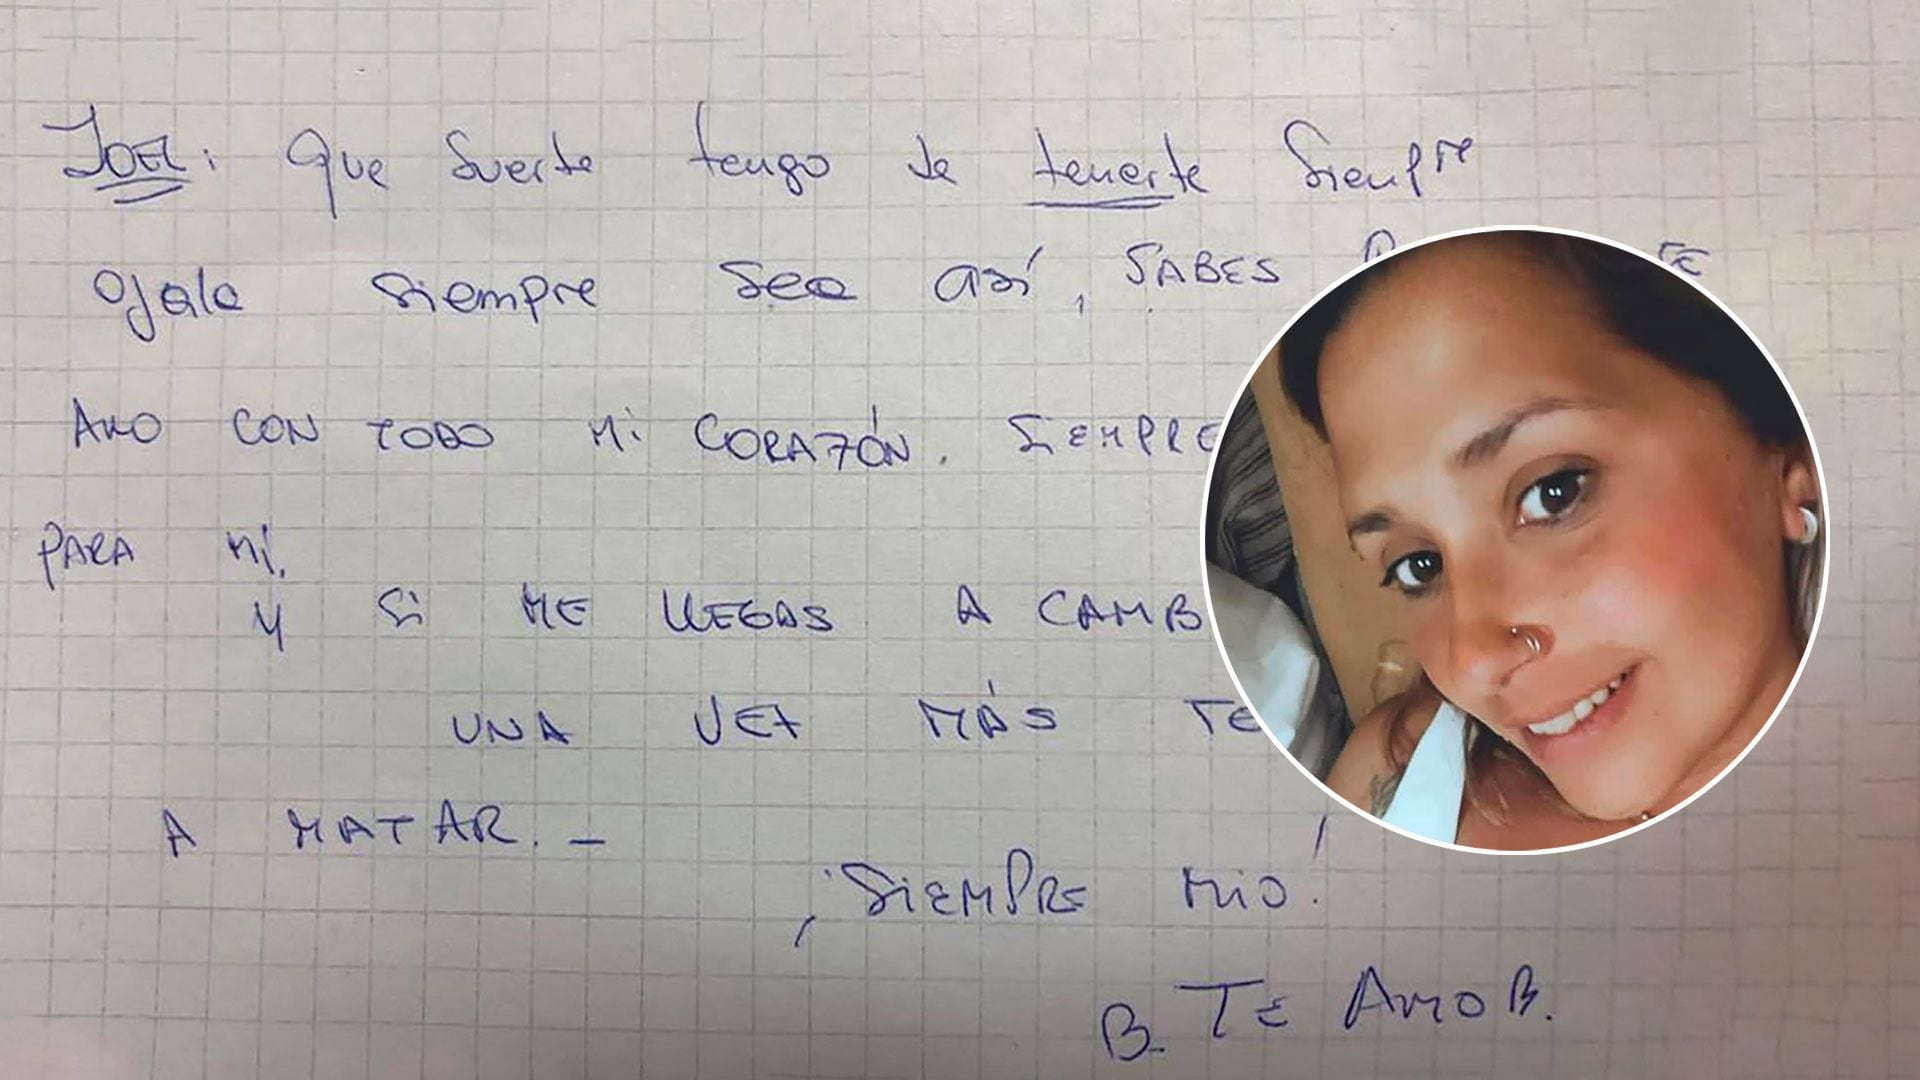 JOEL: Que suerte tengo de tenerte siempre
Ojala siempre sea así, SABES TE
AMO CON TODO Mi CORAZÓN. SiEMPRE
PARA Mí.
Y Si ME LLEGAS A CAMB
UNA VEZ MÁS TE
A MATAR. -
¡SiEMPRE MiO!
B. TE AMO B.